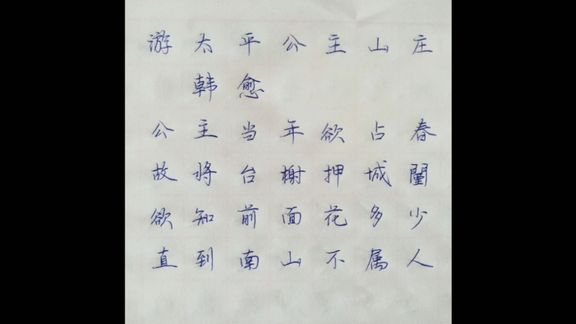 游太平公主山庄
韩愈
公主当年欲占春
故将台榭押城闉
欲知前面花多少
直到南山不属人